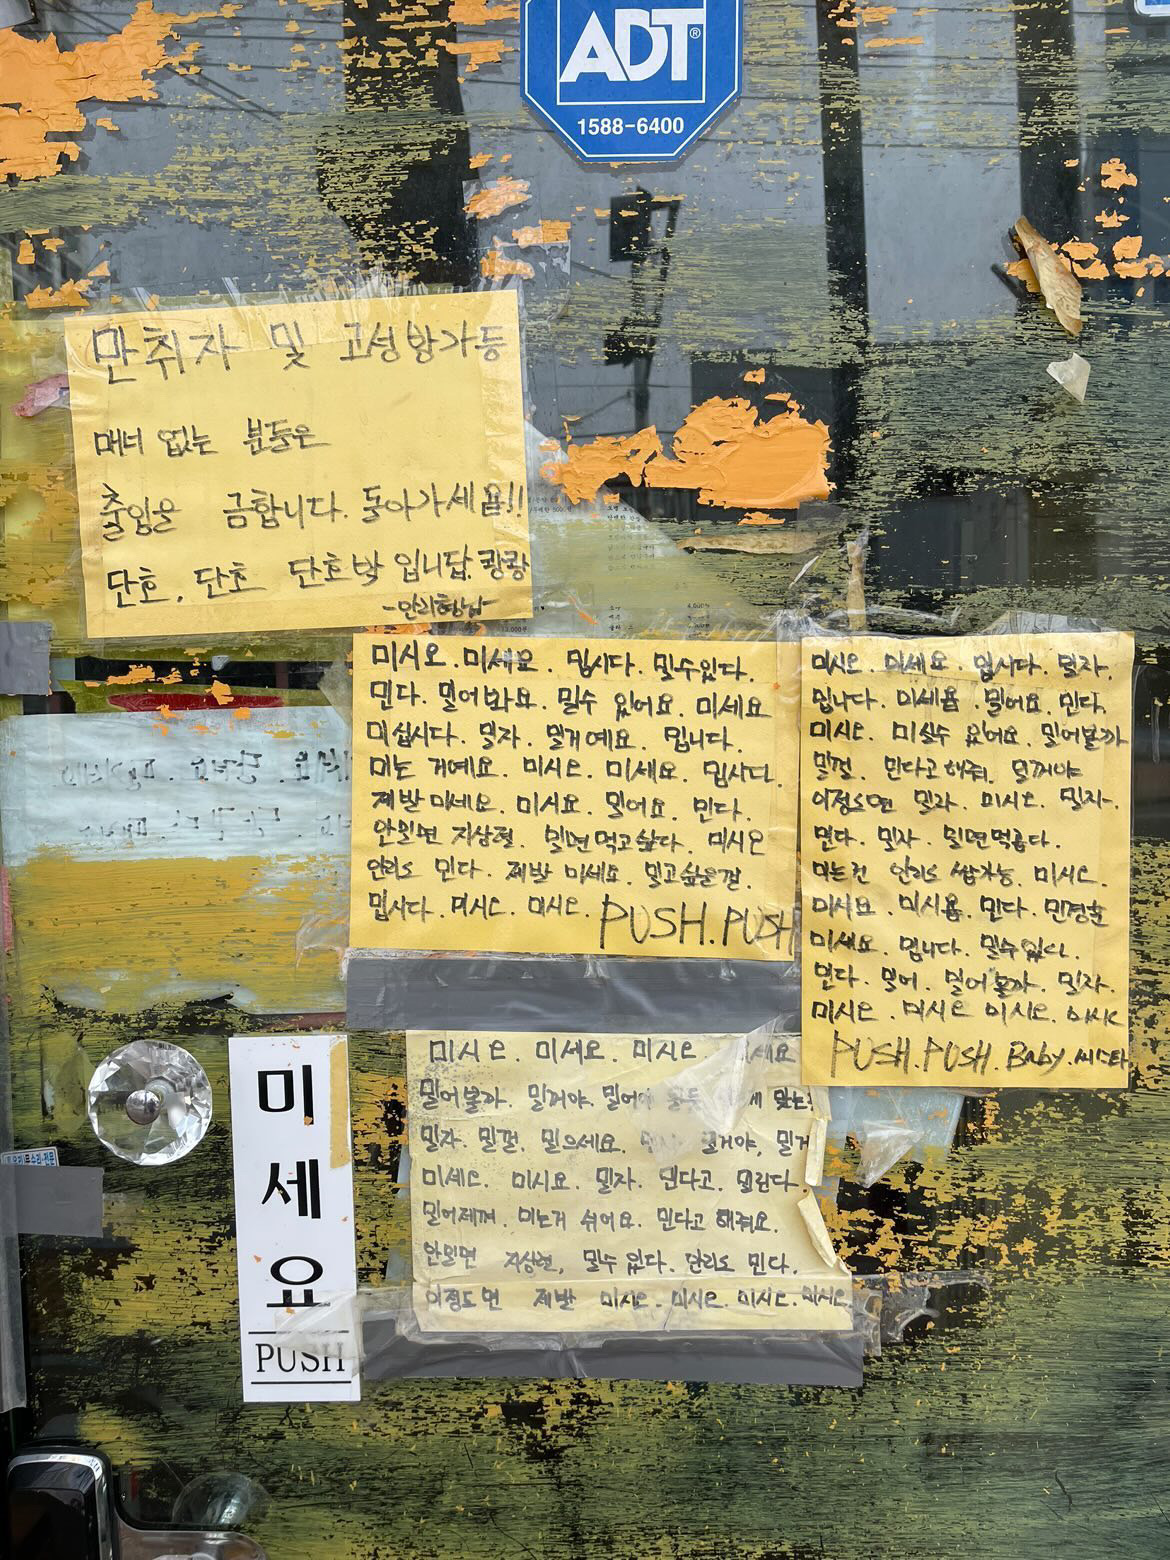 ADT
1588-6400
만취자 및 고성방가등
매너 없는 분들은
출입을 금합니다. 돌아가세욥!!
단호, 단호, 단호박 입니답. 쾅쾅
미시오. 미세요. 밉시다. 밀수있다.
민다. 밀어봐요. 밀수 있어요. 미세요
미십시다. 밀자. 밀거예요. 밉니다.
미는 거예요. 미시오. 미세요. 밉시다.
제발 미세요. 미시요. 밀어요. 민다.
안밀면 지상렬. 밀면먹고싶다. 미시오
민다. 제발 미세요. 밀고싶은걸.
밉시다. 미시오. 미시오. PUSH. PUSH
미시오. 미세요. 밉시다. 밀자.
밉니다. 미세욥. 밀어요. 민다.
미시오. 미실수 있어요. 밀어볼까
밀껄. 민다고해줘. 밀꺼야
이정도면 밀라. 미시오. 밀자.
민다. 밀자. 밀면먹릅다.
미는건 쌉가능. 미시오.
미시요. 미시욥. 민다. 민경훈
미세요. 밉니다. 밀수있다.
민다. 밀어. 밀어볼까. 밀자.
미시오. 미시오 미시오. 미시오
PUSH. PUSH. Baby. 씨스타
미시오. 미세요. 미시오. 세요
밀어볼까. 밀꺼야. 밀어
밀자. 밀껄. 밀으세요. 밀거야, 밀거
미세오. 미시요. 밀자. 민다고. 밀린다
밀어제껴. 미는거 쉬어요. 민다고 해줘요.
안밀면 지상렬, 밀수 있다. 민다.
이정도면 제발 미시오. 미시오. 미시오. 미시오.
미세요
PUSH